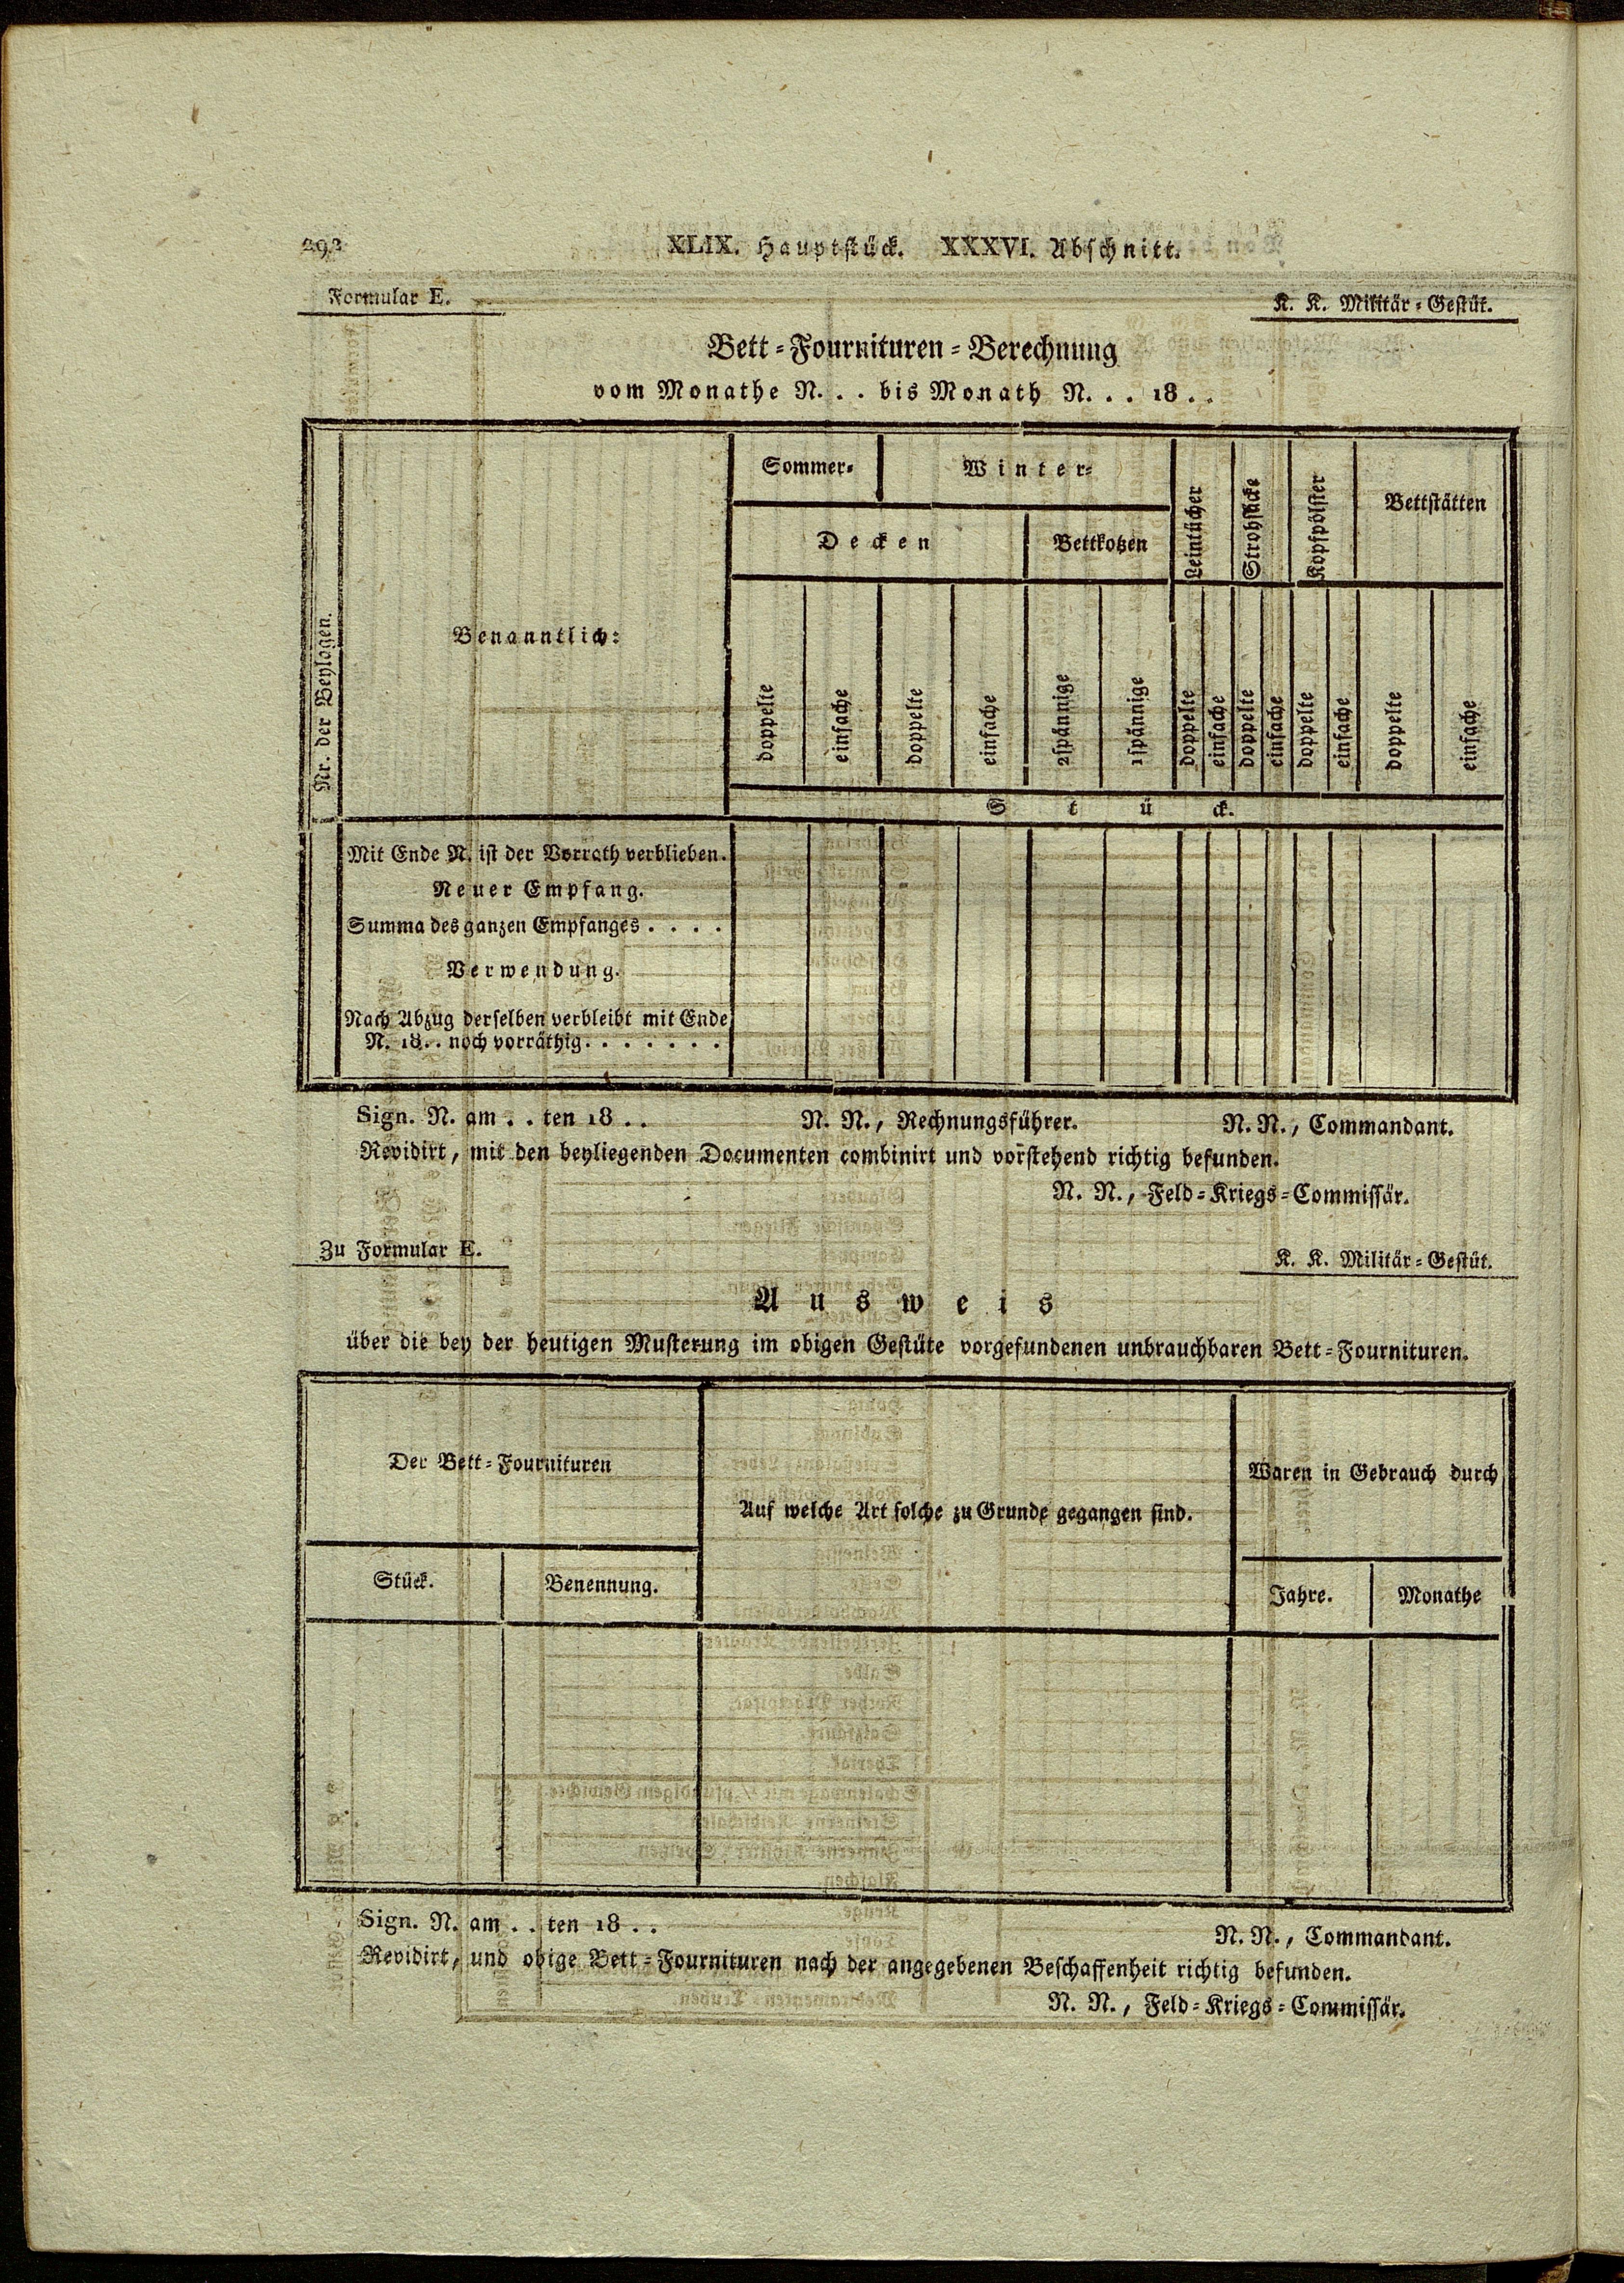 292 XLIX. Hauptstück. XXXVI. Abschnitt.
Formular E. K. K. Militär-Gestüt.
Bett-Fournituren-Berechnung
vom Monathe N. . . bis Monath N. . . 18 . .
Nr. der Beylagen.
Benanntlich:
Sommer- Winter-
Decken Bettkotzen
Leintücher
Strohsäcke
Kopfpölster
Bettstätten
doppelte
einfache
doppelte
einfache
2spännige
1spännige
doppelte
einfache
doppelte
einfache
doppelte
einfache
doppelte
einfache
Stück.
Mit Ende N. ist der Vorrath verblieben.
Neuer Empfang.
Summa des ganzen Empfanges . . . .
Verwendung.
Nach Abzug derselben verbleibt mit Ende
N. 18 . . noch vorräthig . . . . . . .
Sign. N. am . . ten 18 . . N. N., Rechnungsführer. N. N., Commandant.
Revidirt, mit den beyliegenden Documenten combinirt und vorstehend richtig befunden.
N. N., Feld-Kriegs-Commissär.
Zu Formular E. K. K. Militär-Gestüt.
Ausweis
über die bey der heutigen Musterung im obigen Gestüte vorgefundenen unbrauchbaren Bett-Fournituren.
Der Bett-Fournituren
Auf welche Art solche zu Grunde gegangen sind.
Waren in Gebrauch durch
Stück. Benennung. Jahre. Monathe
Sign. N. am . . ten 18 . . N. N., Commandant.
Revidirt, und obige Bett-Fournituren nach der angegebenen Beschaffenheit richtig befunden.
N. N., Feld-Kriegs-Commissär.